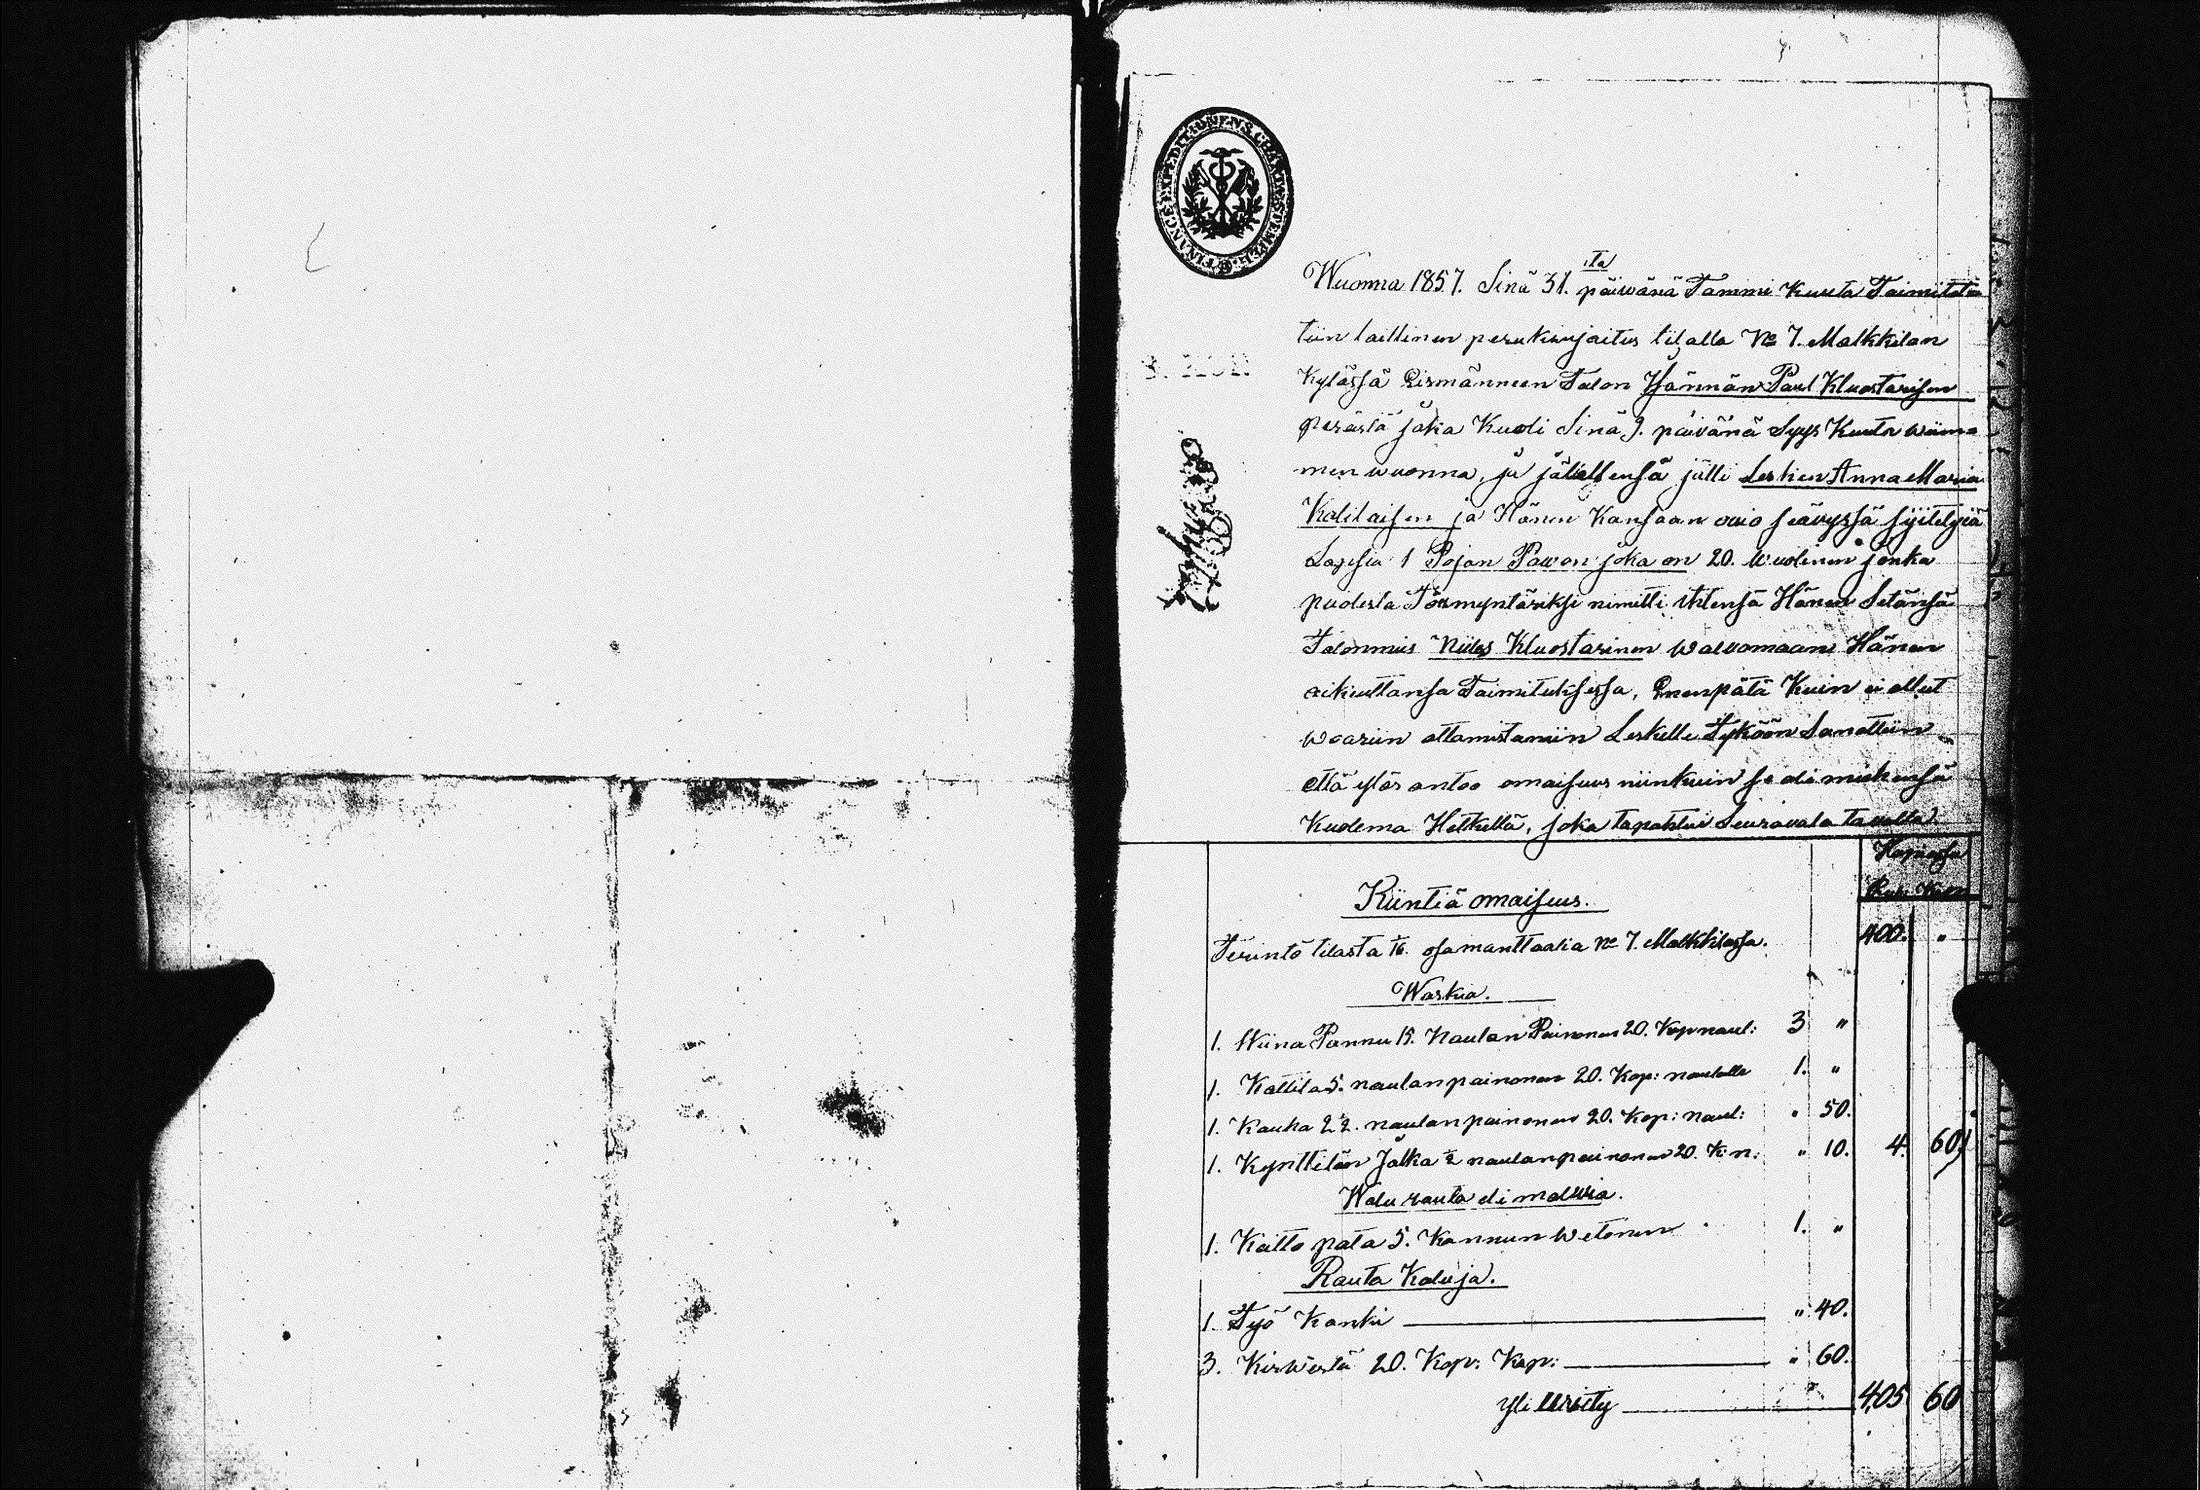 FINANCE EXPEDITIONENS CHARTÆ STEMPEL
Wuonna 1857. Sinä 31.ta päiwänä Tammi Kuuta Toimitet
tiin laillinen perukirjoitus tilalla No 7. Malkkilan
Kyläsfä Rismänneen Talon Isännän Paul Kluostarisen
perästä joka Kuoli Sinä 9. päivänä Syys Kuuta wiime
men wuonna, ja jälellensä jätti Lesken Anna Maria
Kalilaisen ja Hänen Kansaan awio säätysfä syiteltyiä
Lapsia 1 Pojan Pawon joka on 20. Wuotinen jonka
puolesta Förmyntäriksi nimitti ittensä Hänen Setänsä
Talonmies Niilos Kluostarinen walvomaan Hänen
oikeuttansa Toimituksesfa, Enenpätä Kuin ei ollut
waariin ottamistaniin Leskelle Tyköön Sanottiin
että ylös antoo omaisuus niinkuin se oli miehensä
Kuolema Hetkellä, joka tapahtui Seuraavala tavalla.
Hopeasfa
Rup. Kop.
Kiintiä omaisuus.
Perintö tilasta 1/16. osa manttaalia No 7. Malkkilasfa. 400. "
Waskia.
1. Wiina Pannu 15. Naulan Painonen 20. Kop naul: 3 "
1. Kattila 5. naulan painonen 20. Kop: naulalle 1. "
1. Kauha 2 1/2. naulan painonen 20. Kop: naul: " 50.
1. Kynttilän Jalka 1/2 naulan painonen 20. K: n: " 10. 4. 60.
Walu rauta eli malmia.
1. Keitto pata 5. Kannun wetonen 1. "
Rauta Kaluja.
1. Työ Kanki " 40.
3. Kirwestä 20. Kop: Kap: " 60.
Yli wiety 405 60